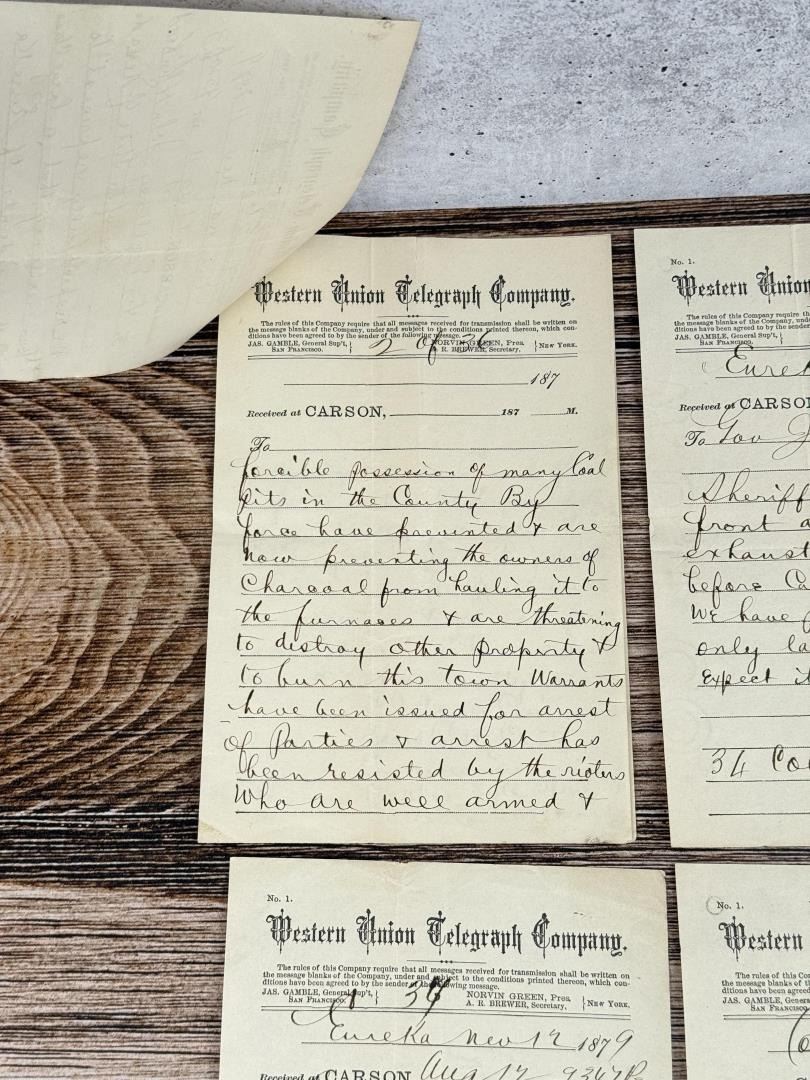 Western Union Telegraph Company.
The rules of this Company require that all messages received for transmission shall be written on
the message blanks of the Company, under and subject to the conditions printed thereon, which con-
ditions have been agreed to by the sender of the following message.
JAS. GAMBLE, General Sup't,
SAN FRANCISCO.
2 of 36
NORVIN GREEN, Pres.
A. R. BREWER, Secretary,
NEW YORK.
187
Received at CARSON, 187 M.
To
forcible possession of many Coal
Pits in the County By
force have prevented & are
now preventing the owners of
Charcoal from hauling it to
the furnaces & are threatening
to distroy other property &
to burn this town Warrants
have been issued for arrest
of Parties & arrest has
been resisted by the rioters
Who are well armed &
No. 1.
Western Union
The rules of this Company require that
the message blanks of the Company, under
ditions have been agreed to by the sender
JAS. GAMBLE, General Sup't,
SAN FRANCISCO.
Received at CARSON
To Gov
Sheriff
front
exhaust
before Ca
We have
only la
Expect it
34
No. 1.
Western Union Telegraph Company.
The rules of this Company require that all messages received for transmission shall be written on
the message blanks of the Company, under and subject to the conditions printed thereon, which con-
ditions have been agreed to by the sender of the following message.
JAS. GAMBLE, General Sup't,
SAN FRANCISCO.
NORVIN GREEN, Pres.
A. R. BREWER, Secretary,
NEW YORK.
Eureka Nev 12 1879
Received at CARSON Aug 12
No. 1.
Western
The rules of this Com
the message blanks of the
ditions have been agreed
JAS. GAMBLE, General
SAN FRANCISCO